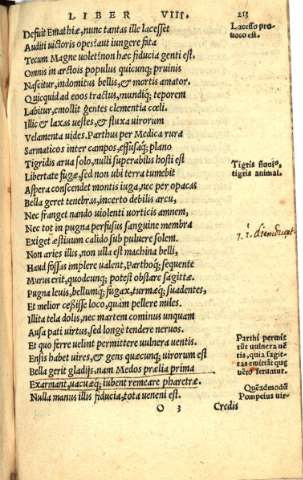 LIBER VIII. 215
Defuit Emathiæ, nunc tantas ille lacesset
Auditi uictoris opes: aut iungere fata
Tecum Magne uolet? non hæc fiducia genti est.
Omnis in arctois populus quicunq; pruinis
Nascitur, indomitus bellis, & mortis amator.
Quicquid ad eoos tractus, mundiq; teporem
Labitur, emollit gentes clementia cœli.
Illic & laxas uestes, & fluxa uirorum
Velamenta uides. Parthus per Medica rura
Sarmaticos inter campos, effusaq; plano
Tigridis arua solo, nulli superabilis hosti est
Libertate fugæ, sed non ubi terra tumebit
Aspera conscendet montis iuga, nec per opacas
Bella geret tenebras, incerto debilis arcu,
Nec franget nando uiolenti uorticis amnem,
Nec tot in pugna perfusus sanguine membra
Exiget æstiuum calido sub puluere solem.
Non aries illis, non ulla est machina belli,
Haud fossas implere ualent, Parthoq; sequente
Murus erit, quodcunq; potest obstare sagittæ.
Pugna leuis, bellumq; fugax, turmæq; suadentes,
Et melior cessisse loco, quàm pellere miles.
Illita tela dolis, nec martem cominus unquam
Ausa pati uirtus, sed longè tendere neruos.
Et quo ferre uelint permittere uulnera uentis.
Ensis habet uires, & gens quæcunq; uirorum est
Bella gerit gladijs, nam Medos prælia prima
Exarmant, uacuæq; iubent remeare pharetræ.
Nulla manus illis fiducia, tota ueneni est.
O 3 Credis
Lacesso pro
uoco est.
Tigris fluuio,
tigris animal.
Parthi permit
tit uulnera uē
tis, quia sagit
Quēadmodū
Pompeius uir